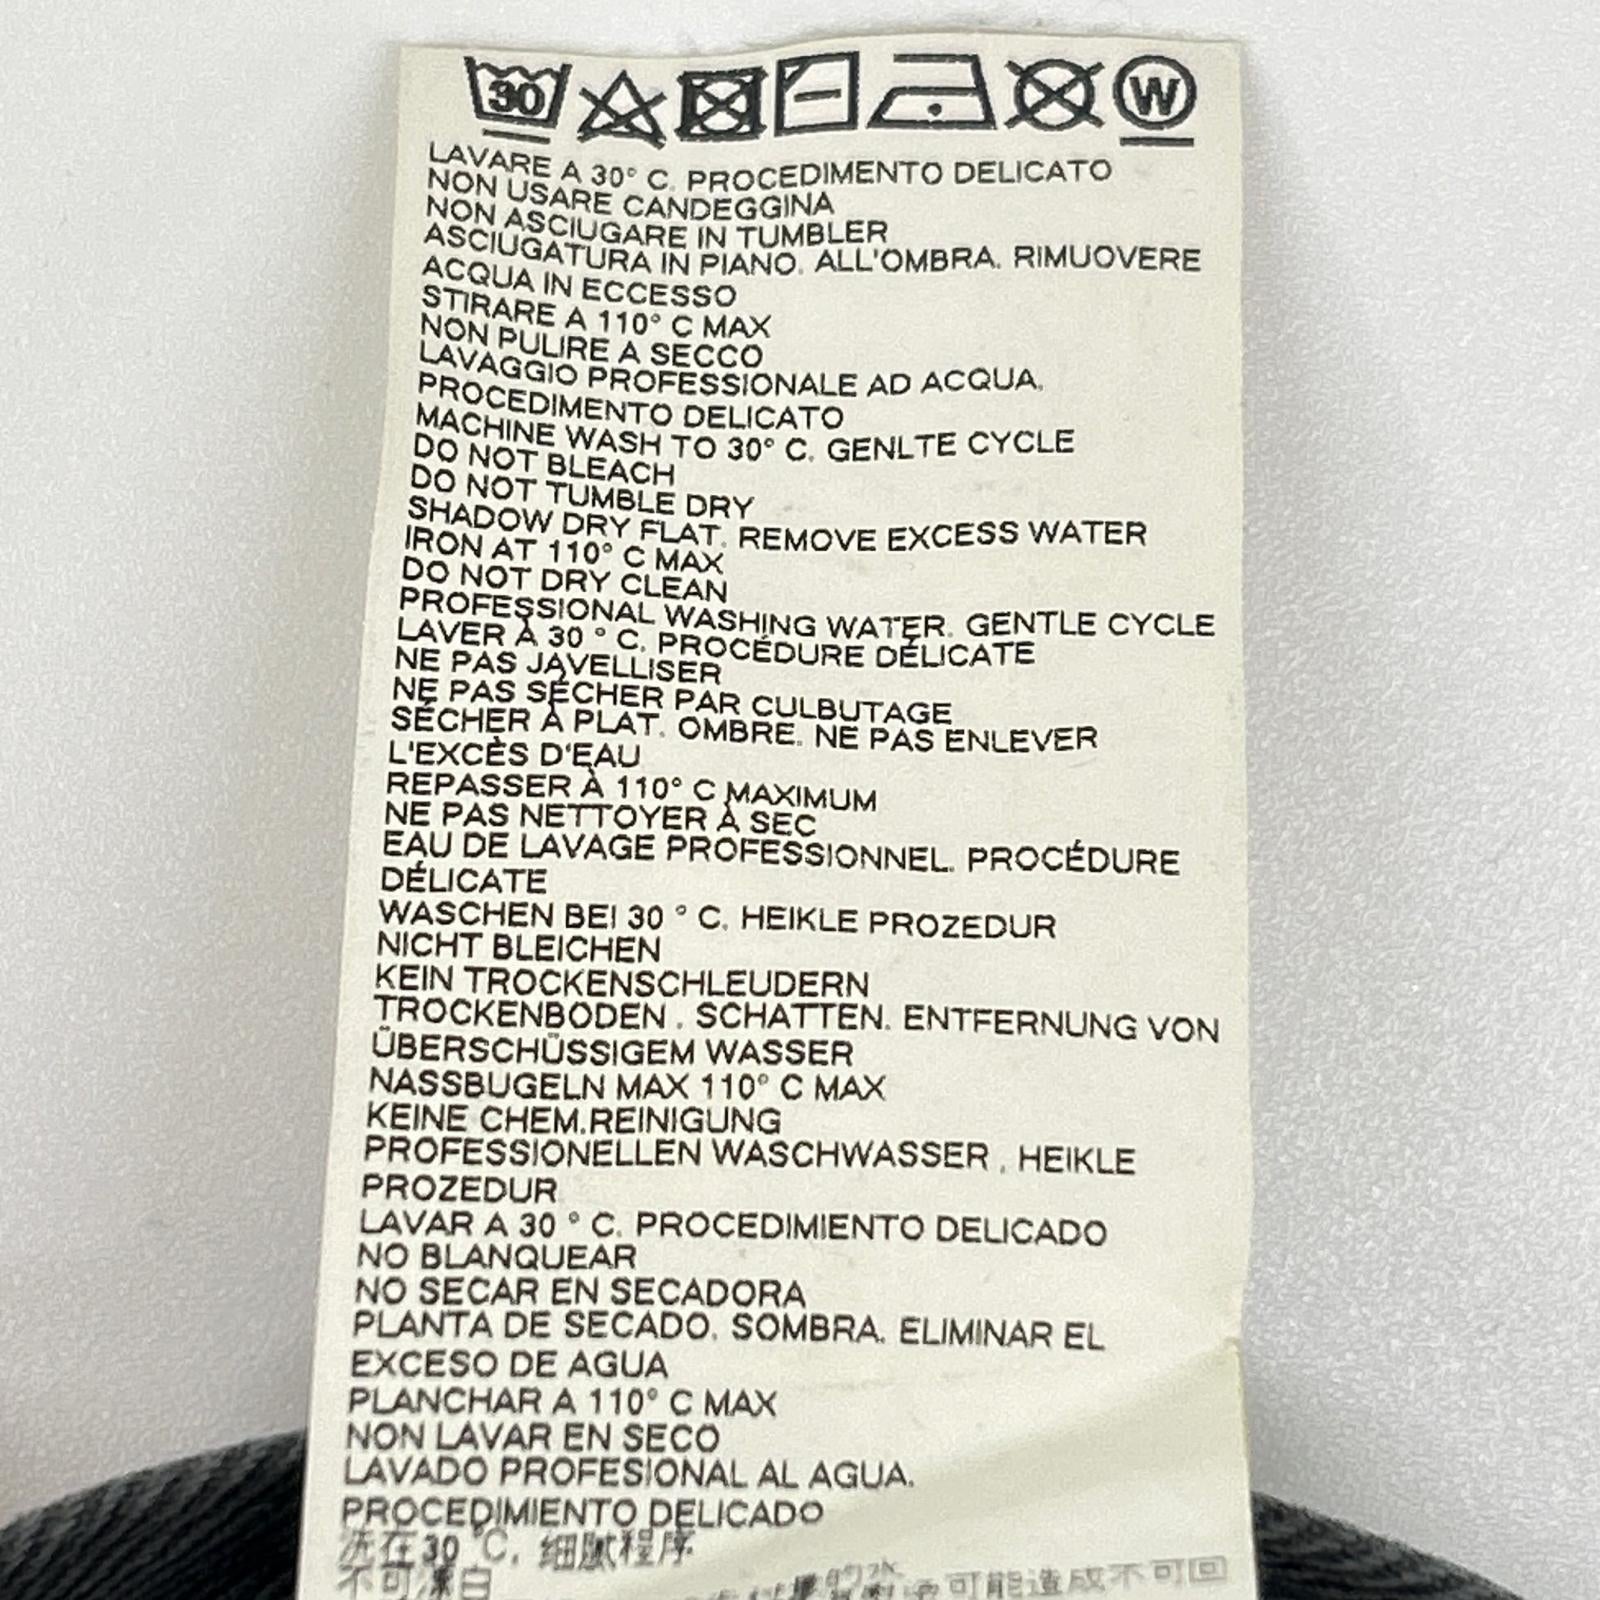 30
W
LAVARE A 30° C. PROCEDIMENTO DELICATO
NON USARE CANDEGGINA
NON ASCIUGARE IN TUMBLER
ASCIUGATURA IN PIANO. ALL'OMBRA. RIMUOVERE
ACQUA IN ECCESSO
STIRARE A 110° C MAX
NON PULIRE A SECCO
LAVAGGIO PROFESSIONALE AD ACQUA.
PROCEDIMENTO DELICATO
MACHINE WASH TO 30° C. GENLTE CYCLE
DO NOT BLEACH
DO NOT TUMBLE DRY
SHADOW DRY FLAT. REMOVE EXCESS WATER
IRON AT 110° C MAX
DO NOT DRY CLEAN
PROFESSIONAL WASHING WATER. GENTLE CYCLE
LAVER À 30 ° C. PROCÉDURE DÉLICATE
NE PAS JAVELLISER
NE PAS SÉCHER PAR CULBUTAGE
SÉCHER À PLAT. OMBRE. NE PAS ENLEVER
L'EXCÈS D'EAU
REPASSER À 110° C MAXIMUM
NE PAS NETTOYER À SEC
EAU DE LAVAGE PROFESSIONNEL. PROCÉDURE
DÉLICATE
WASCHEN BEI 30 ° C. HEIKLE PROZEDUR
NICHT BLEICHEN
KEIN TROCKENSCHLEUDERN
TROCKENBODEN . SCHATTEN. ENTFERNUNG VON
ÜBERSCHÜSSIGEM WASSER
NASSBUGELN MAX 110° C MAX
KEINE CHEM.REINIGUNG
PROFESSIONELLEN WASCHWASSER . HEIKLE
PROZEDUR
LAVAR A 30 ° C. PROCEDIMIENTO DELICADO
NO BLANQUEAR
NO SECAR EN SECADORA
PLANTA DE SECADO. SOMBRA. ELIMINAR EL
EXCESO DE AGUA
PLANCHAR A 110° C MAX
NON LAVAR EN SECO
LAVADO PROFESIONAL AL AGUA.
PROCEDIMIENTO DELICADO
洗在30 °C. 细腻程序
不可漂白
可能造成不可回